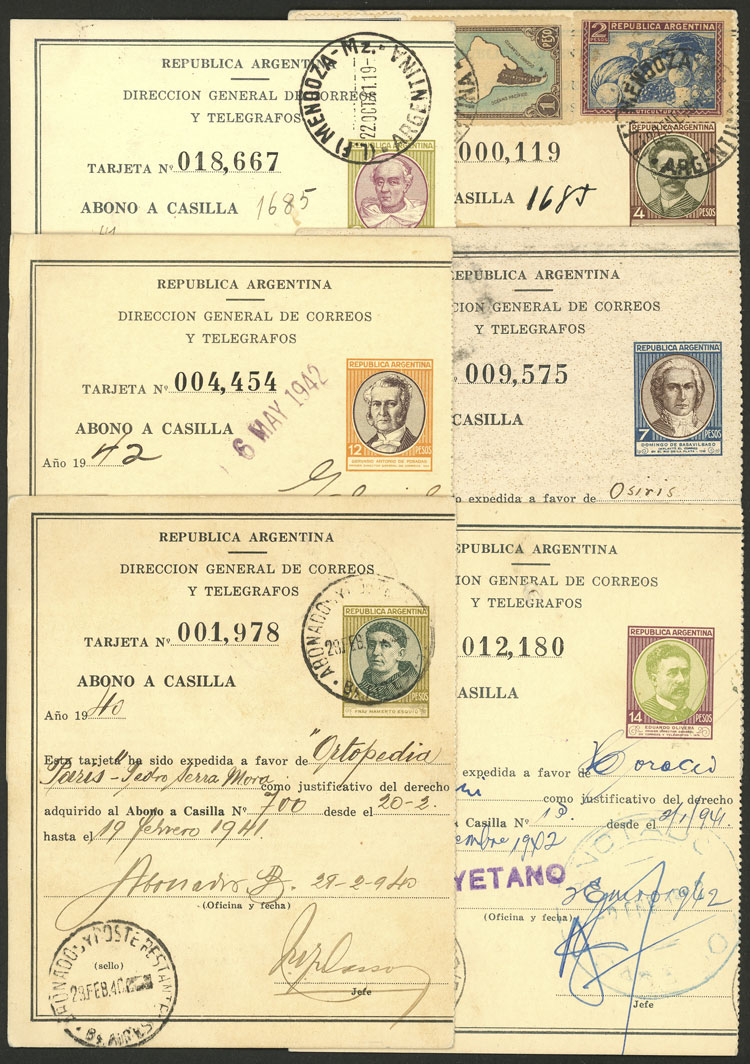 REPUBLICA ARGENTINA
DIRECCION GENERAL DE CORREOS
Y TELEGRAFOS
TARJETA Nº 018,667
ABONO A CASILLA 1685
(L.F) MENDOZA-Mz.- ARGENTINA
22.OCT.
1 PESO
OCEANO PACIFICO
2 PESOS
REPUBLICA ARGENTINA
FRUTICULTURA
MENDOZA
ARGENTIN
000,119
ASILLA 1685
4 PESOS
REPUBLICA ARGENTINA
DIRECCION GENERAL DE CORREOS
Y TELEGRAFOS
TARJETA Nº 004,454
ABONO A CASILLA
Año 19 42
6 MAY 1942
REPUBLICA ARGENTINA
12 PESOS
GERVASIO ANTONIO DE POSADAS
EPUBLICA ARGENTINA
ION GENERAL DE CORREOS
Y TELEGRAFOS
009,575
CASILLA
REPUBLICA ARGENTINA
7 PESOS
DOMINGO DE BASAVILBASO
do expedida a favor de Osiris
REPUBLICA ARGENTINA
DIRECCION GENERAL DE CORREOS
Y TELEGRAFOS
TARJETA Nº 001,978
ABONO A CASILLA
Año 19 40
REPUBLICA ARGENTINA
PESOS
FRAY MAMERTO ESQUIU
ABONADOS Y POSTE RESTANTE
28.FEB.
Bs. AIRES
Esta tarjeta ha sido expedida a favor de "Ortopedia
Paris" - Pedro Serra Mora como justificativo del derecho
adquirido al Abono a Casilla Nº 700 desde el 20-2-
hasta el 19 febrero 1941.
Abonados B. 29-2-940
(Oficina y fecha)
(sello)
Jefe
ABONADOS Y POSTE RESTANTE
28.FEB.40
Bs. AIRES
EPUBLICA ARGENTINA
ION GENERAL DE CORREOS
Y TELEGRAFOS
012,180
ASILLA
REPUBLICA ARGENTINA
14 PESOS
EDUARDO OLIVERA
expedida a favor de Horacio
como justificativo del derecho
a Casilla Nº 13. desde el 2/1/941
embre 1942
YETANO
(Oficina y fecha)
Jefe